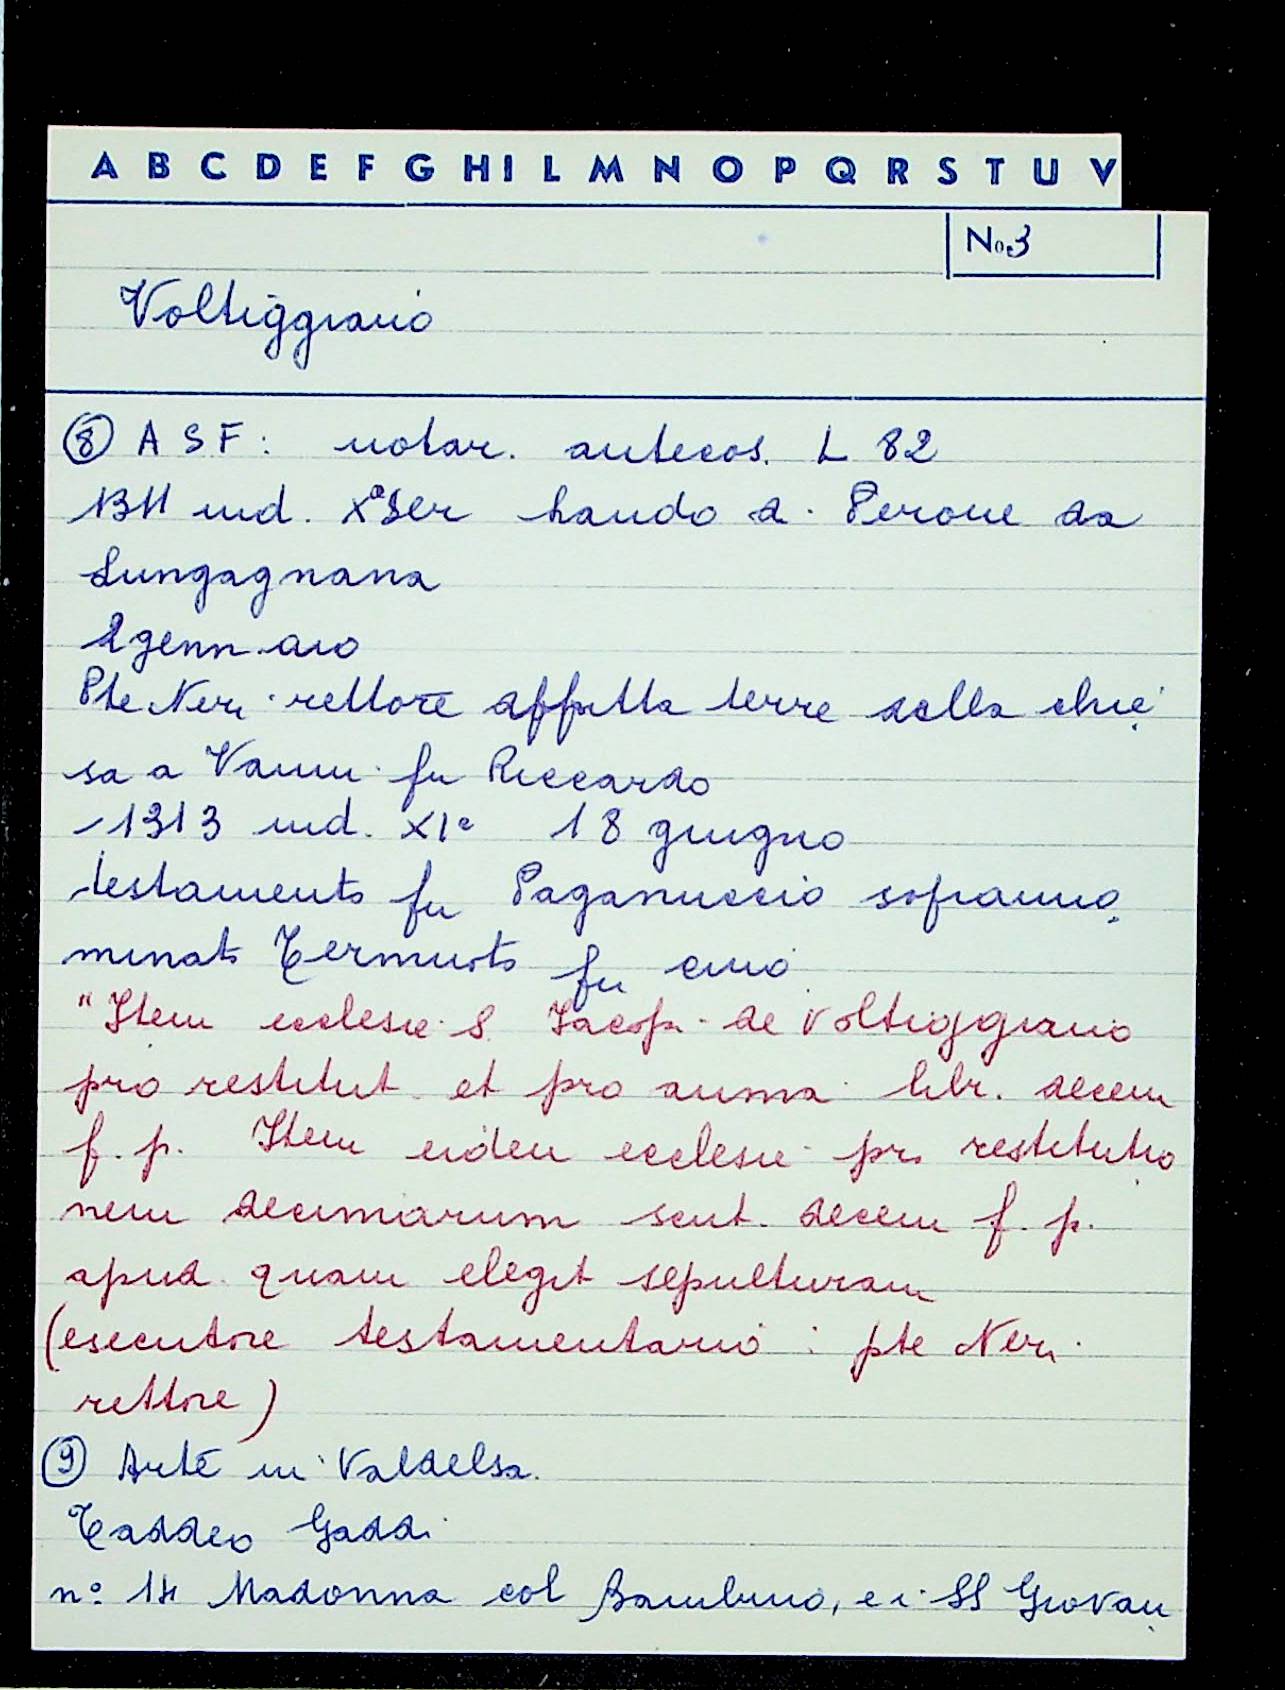 A B C D E F G H I L M N O P Q R S T U V
No. 3
Voltiggiano
⑧ A S F: notar. antecos. L 82
1311 ind. Xª Ser Lando d. Perone da
Lungagnana
2 gennaio
Pte Neri rettore affitta terre della chie
sa a Vanni fu Riccardo
- 1313 ind. XIª 18 giugno
testamento fu Paganuccio sopranno
minato fu
"Item ecclesie S. Iacopi de Voltiggiano
pro restitut. et pro anima libr. decem
f. p. Item eidem ecclesie pro restitutio
nem decimarum sent. decem f. p.
apud quam elegit sepulturam
(esecutore testamentario: pte Neri
rettore)
⑨ Arte in Valdelsa.
Taddeo Gaddi
n° 14 Madonna col Bambino, e i SS Giovan